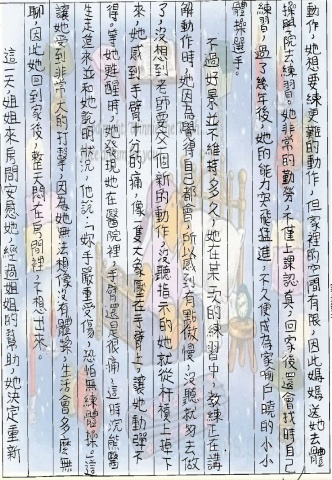 動作，她想要練更難的動作，但家裡的空間有限，因此媽媽送她去體
操學院去練習。她非常的勤勞，不僅上課認真，回家後還會找時自己
練習，過了幾年後，她的能力突飛猛進，不久便成為家喻戶曉的小小
體操選手。
不過好景並不維持多久，她在某一次的練習中，教練正在講
解動作時，她因為覺得自己都會，所以感到有點傲慢，沒聽就去做
了，沒想到老師要教一個新的動作，沒聽指示的她就從杆積上掉下
來，她感到手臂十分的痛，像隻大象壓在手臂上，讓她動彈不
得，等她甦醒時，她發現她在醫院裡，手臂還是很痛，這時，醫
生走進來並和她說明狀況，他說：「妳手嚴重受傷，恐怕無練體操。」這
讓她受到非常大的打擊，因為她無法想像沒有體操，生活會多麼無
聊，因此她回到家後，整天悶在房間裡，不想出來。
這一天，姐姐來房間安慰她，經過姐姐的幫助，她決定重新